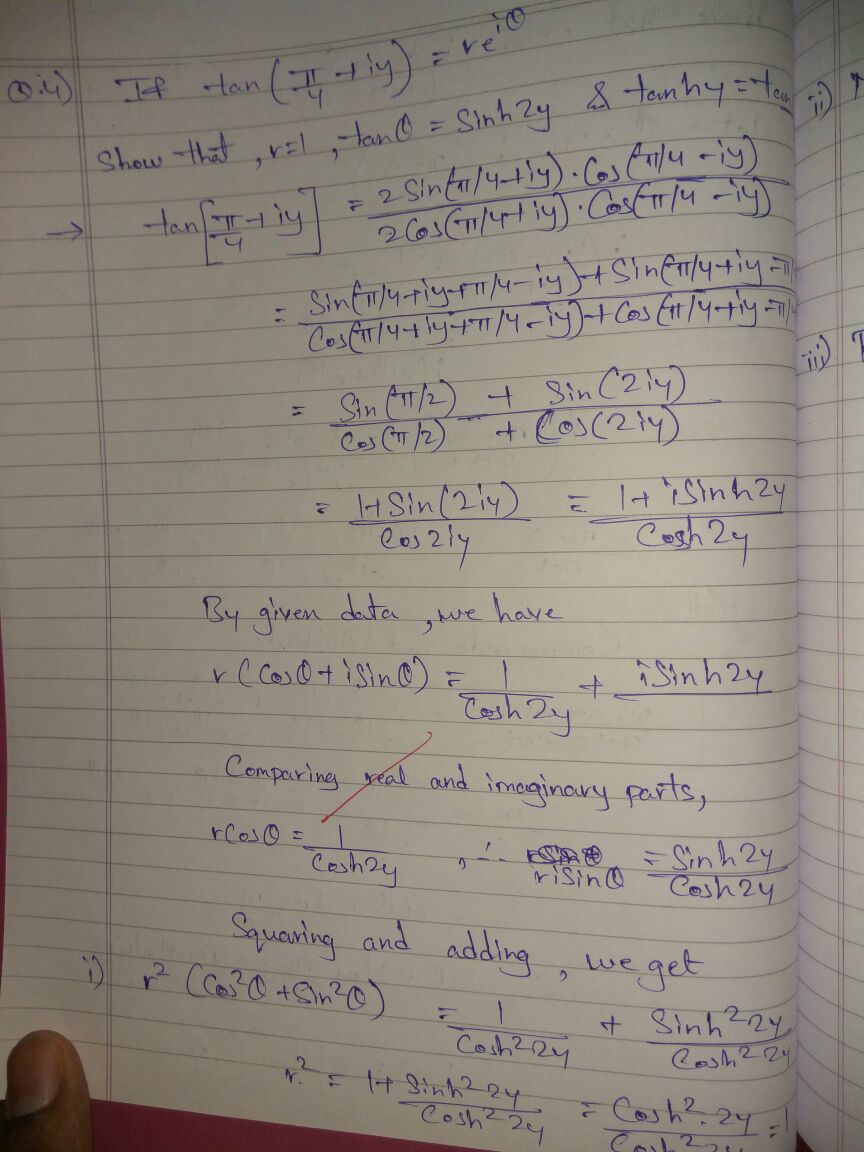 Q.4) If tan(π/4 + iy) = re^iθ
Show that, r=1, tanθ = Sinh2y & tanhy = tan
→ tan[π/4 + iy] = 2 Sin(π/4+iy) . Cos(π/4 - iy) / 2 Cos(π/4+iy) . Cos(π/4 - iy)
= Sin(π/4+iy+π/4-iy) + Sin(π/4+iy-π / Cos(π/4+iy+π/4-iy) + Cos(π/4+iy-π/
= Sin(π/2) + Sin(2iy) / Cos(π/2) + Cos(2iy)
= 1+Sin(2iy) / Cos2iy = 1+iSinh2y / Cosh2y
By given data, we have
r(Cosθ + iSinθ) = 1 / Cosh2y + iSinh2y
Comparing real and imaginary parts,
rCosθ = 1 / Cosh2y , ∴ riSinθ = Sinh2y / Cosh2y
Squaring and adding, we get
i) r² (Cos²θ + Sin²θ) = 1 / Cosh²2y + Sinh²2y / Cosh²2y
r² = 1+Sinh²2y / Cosh²2y = Cosh².2y / Cosh²2y = 1
ii)
iii)